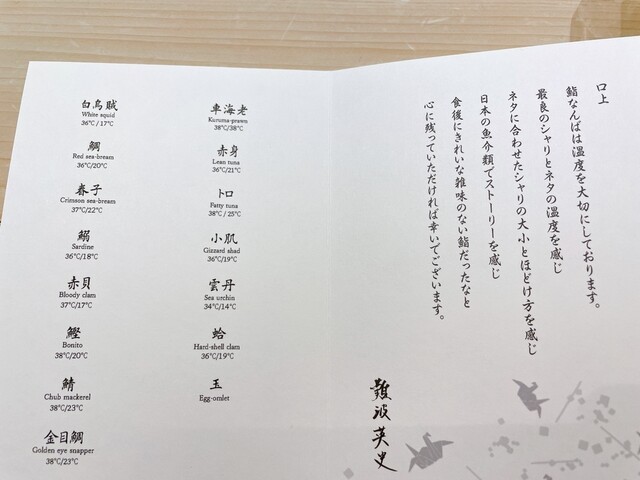 白烏賊
White squid
36℃/17℃
鯛
Red sea-bream
36℃/20℃
春子
Crimson sea-bream
37℃/22℃
鰯
Sardine
36℃/18℃
赤貝
Bloody clam
37℃/17℃
鰹
Bonito
38℃/20℃
鯖
Chub mackerel
38℃/23℃
金目鯛
Golden eye snapper
38℃/23℃
車海老
Kuruma-prawn
38℃/38℃
赤身
Lean tuna
36℃/21℃
トロ
Fatty tuna
38℃/25℃
小肌
Gizzard shad
36℃/19℃
雲丹
Sea urchin
34℃/14℃
蛤
Hard-shell clam
36℃/19℃
玉
Egg-omlet
口上
鮨なんばは温度を大切にしております。
最良のシャリとネタの温度を感じ
ネタに合わせたシャリの大小とほどけ方を感じ
日本の魚介類でストーリーを感じ
食後にきれいな雑味のない鮨だったなと
心に残っていただければ幸いでございます。
難波英史